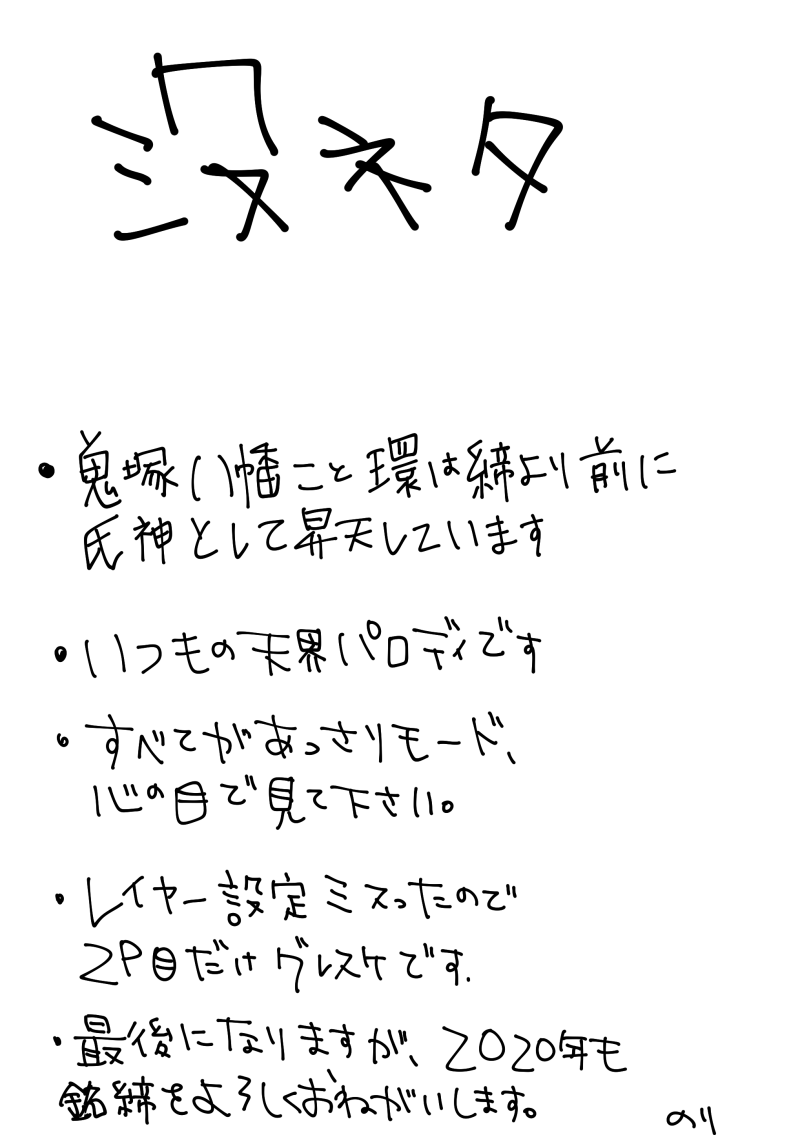 没ネタ
・鬼塚八幡こと環は締より前に
氏神として昇天しています
・いつもの天界パロディです
・すべてがあっさりモード、
心の目で見て下さい。
・レイヤー設定ミスったので
2P目だけグレスケです.
・最後になりますが、2020年も
銘締をよろしくおねがいします。
のり